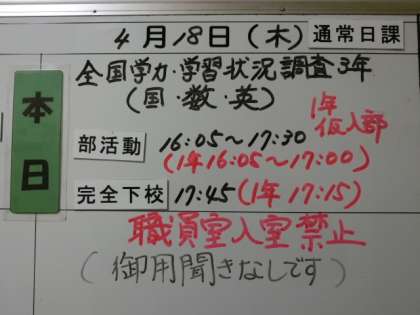 4月18日(木) 通常日課
本日
全国学力・学習状況調査3年
(国・数・英)
1年
仮入部
部活動 16:05~17:30
(1年16:05~17:00)
完全下校 17:45(1年17:15)
職員室入室禁止
(御用聞きなしです)